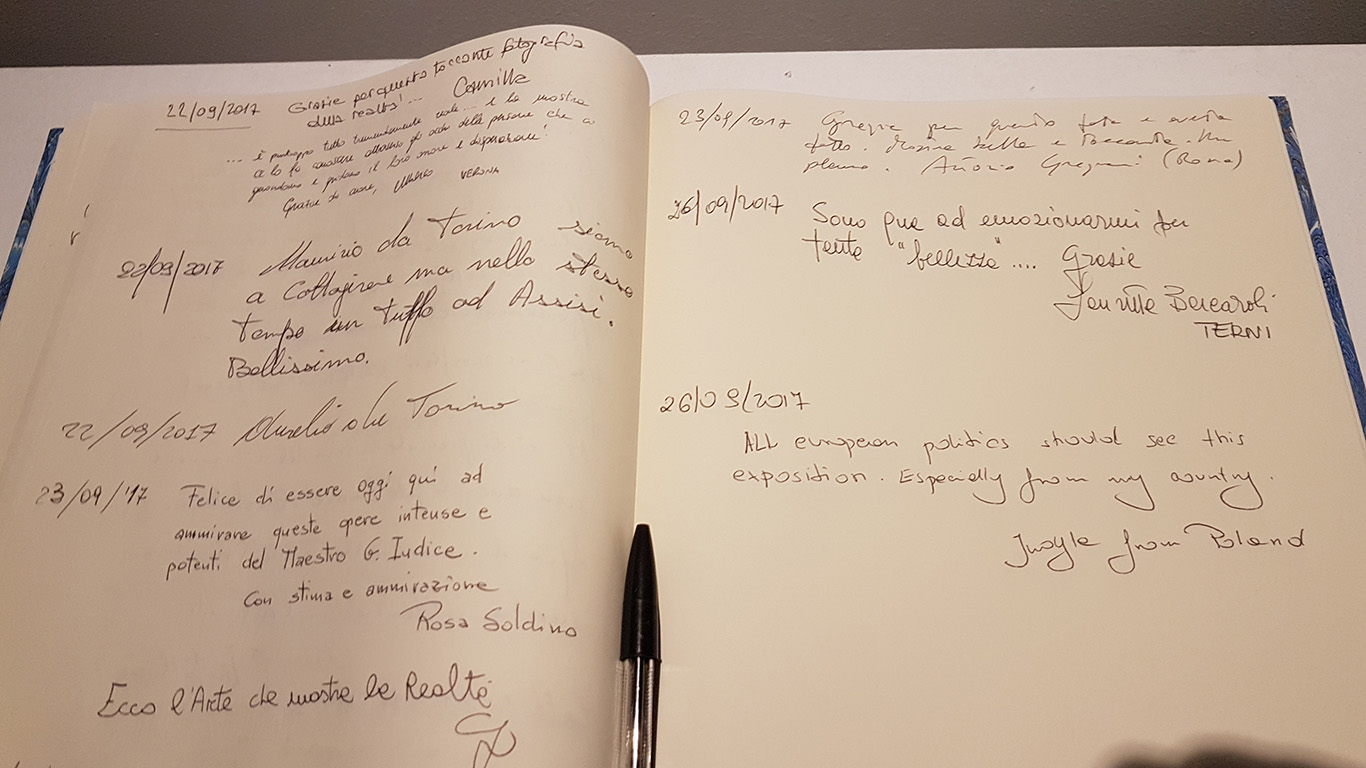 22/09/2017 Grazie per questa toccante fotografia
della realtà!... Camilla
... è purtroppo tutto tremendamente reale... e la mostra
ce lo fa attraverso gli occhi delle persone che ci
guardano e il loro e disperazione!
Grazie di cuore, VERONA
22/09/2017 Maurizio da Torino siamo
a Caltagirone ma nello stesso
tempo un tuffo ad Assisi.
Bellissimo.
22/09/2017 Aurelio da Torino
23/09/'17 Felice di essere oggi qui ad
ammirare queste opere intense e
potenti del Maestro G. Iudice.
Con stima e ammirazione
Rosa Soldino
Ecco l'Arte che mostra la Realtà
23/09/2017 Grazie per questa
tutto. Mostra bella e toccante. Un
(Roma)
26/09/2017 Sono qua ad emozionarmi per
tanta "bellezza".... Grazie
TERNI
26/09/2017
ALL european politics should see this
exposition. Especially from my country.
from Poland